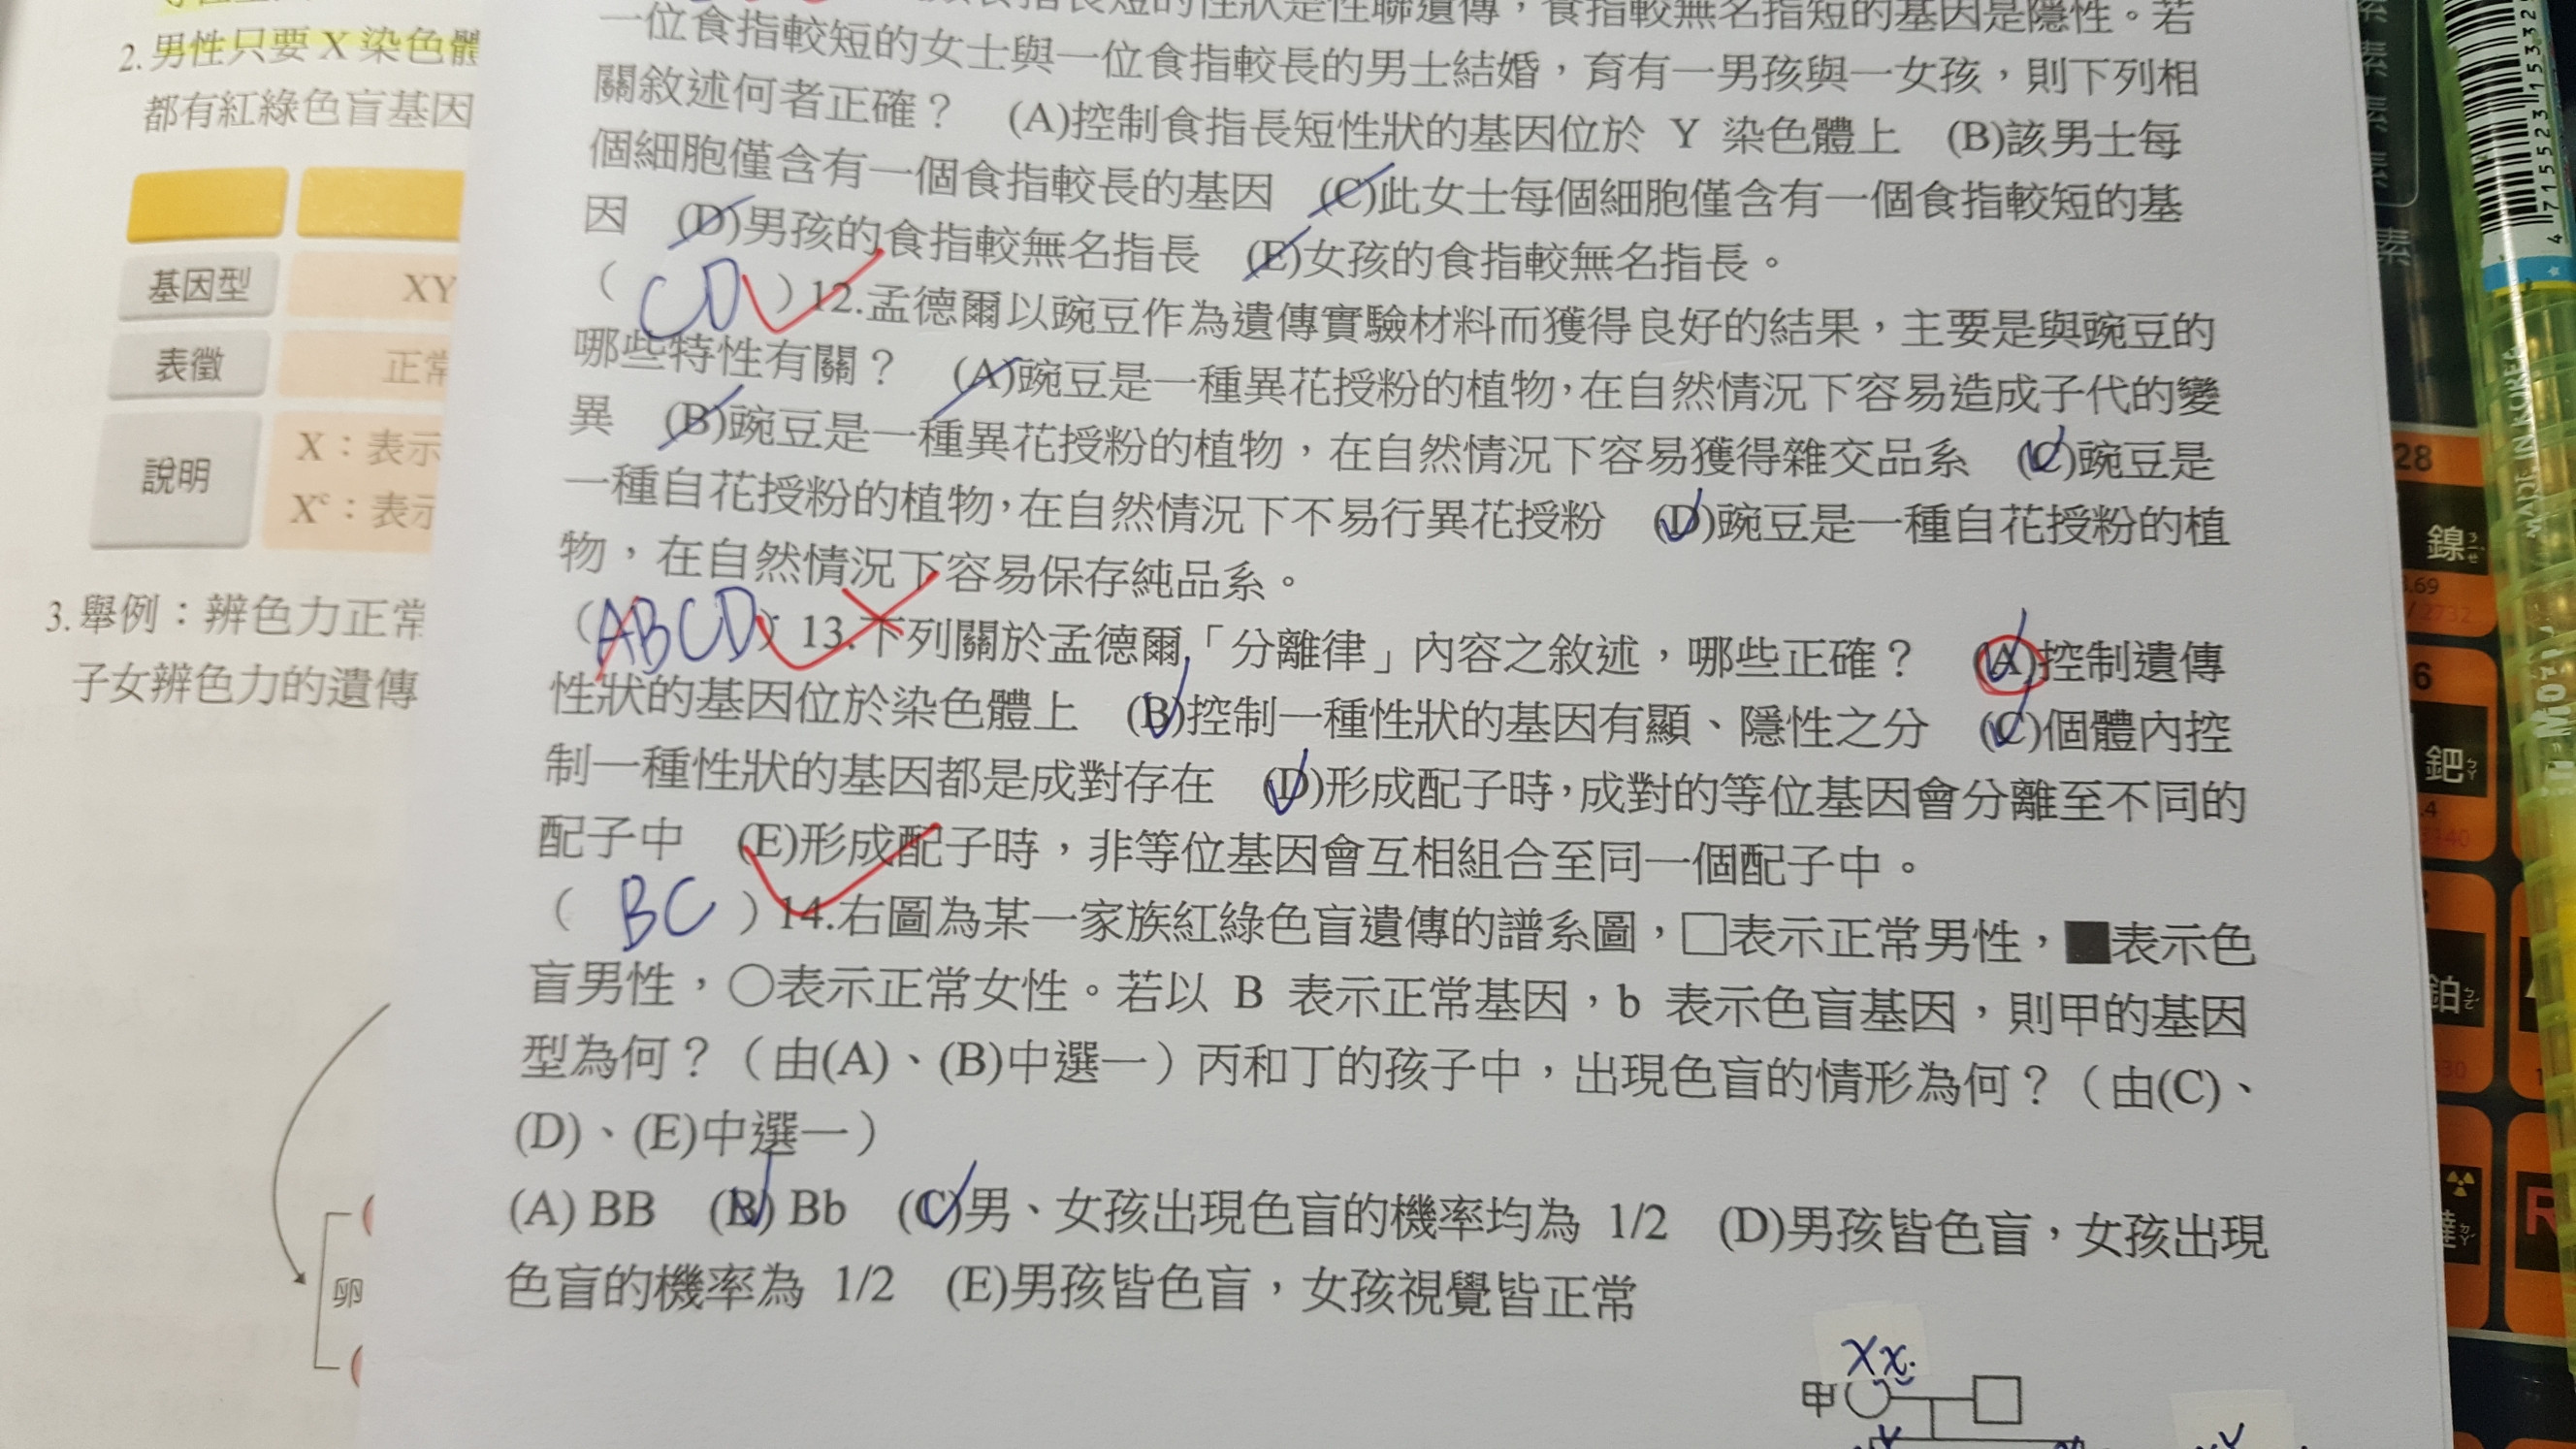 2. 男性只要 X 染色體
都有紅綠色盲基因
基因型
XY
表徵
正常
說明
X：表示
Xᶜ：表示
3. 舉例：辨色力正常
子女辨色力的遺傳
卵
一位食指較短的女士與一位食指較長的男士結婚，育有一男孩與一女孩，則下列相
關敘述何者正確？ (A)控制食指長短性狀的基因位於 Y 染色體上 (B)該男士每
個細胞僅含有一個食指較長的基因 (C)此女士每個細胞僅含有一個食指較短的基
因 (D)男孩的食指較無名指長 (E)女孩的食指較無名指長。
( CD )12.孟德爾以豌豆作為遺傳實驗材料而獲得良好的結果，主要是與豌豆的
哪些特性有關？ (A)豌豆是一種異花授粉的植物，在自然情況下容易造成子代的變
異 (B)豌豆是一種異花授粉的植物，在自然情況下容易獲得雜交品系 (C)豌豆是
一種自花授粉的植物，在自然情況下不易行異花授粉 (D)豌豆是一種自花授粉的植
物，在自然情況下容易保存純品系。
( ABCD )13.下列關於孟德爾「分離律」內容之敘述，哪些正確？ (A)控制遺傳
性狀的基因位於染色體上 (B)控制一種性狀的基因有顯、隱性之分 (C)個體內控
制一種性狀的基因都是成對存在 (D)形成配子時，成對的等位基因會分離至不同的
配子中 (E)形成配子時，非等位基因會互相組合至同一個配子中。
( BC )14.右圖為某一家族紅綠色盲遺傳的譜系圖，□表示正常男性，■表示色
盲男性，○表示正常女性。若以 B 表示正常基因，b 表示色盲基因，則甲的基因
型為何？（由(A)、(B)中選一）丙和丁的孩子中，出現色盲的情形為何？（由(C)、
(D)、(E)中選一）
(A) BB (B) Bb (C)男、女孩出現色盲的機率均為 1/2 (D)男孩皆色盲，女孩出現
色盲的機率為 1/2 (E)男孩皆色盲，女孩視覺皆正常
Xx
甲
28
鎳
鈀
鉑
MADE IN KOREA